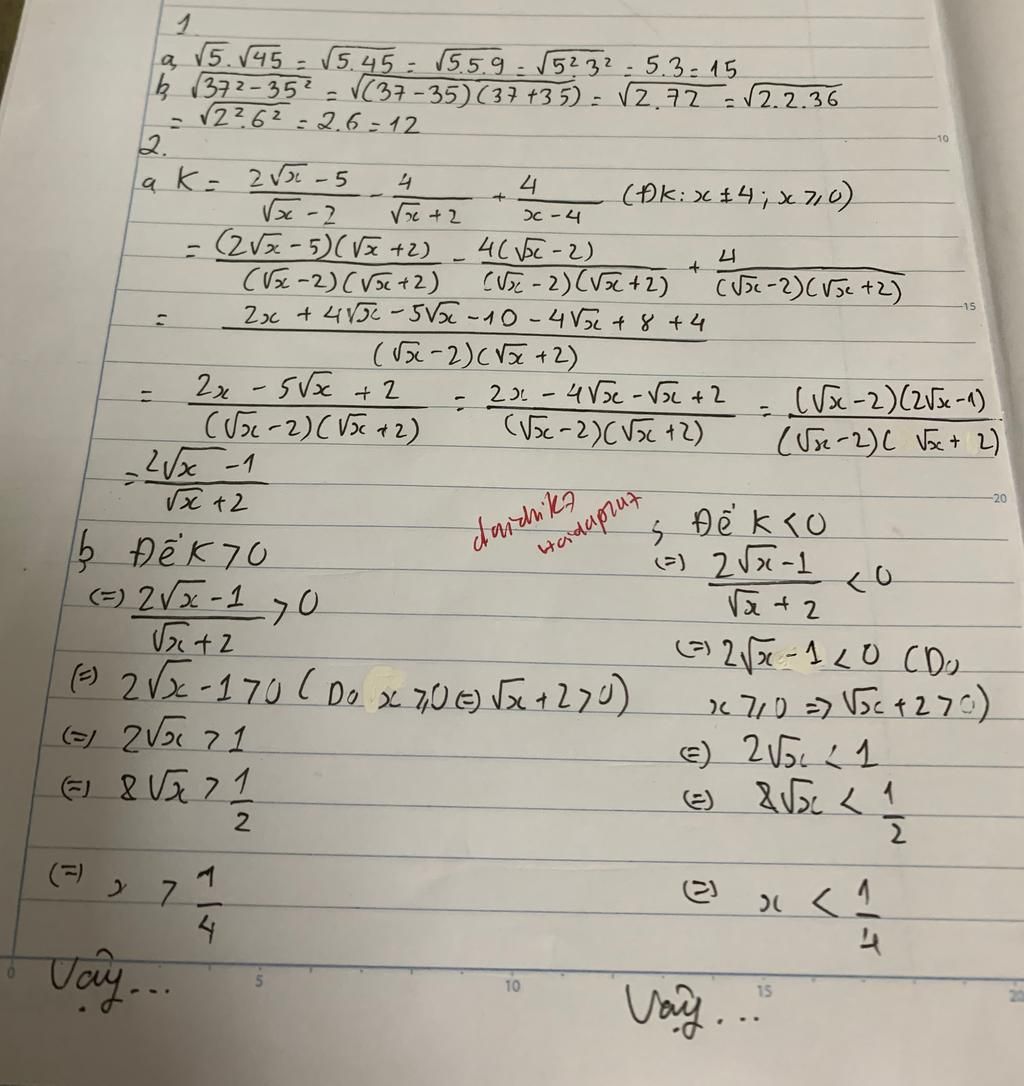 1
a, √5.√45 = √5.45 = √5.5.9 = √5².3² = 5.3 = 15
b, √37²-35² = √(37-35)(37+35) = √2.72 = √2.2.36
= √2².6² = 2.6 = 12
2.
a K = (2√x - 5)/(√x - 2) - 4/(√x + 2) + 4/(x - 4) (ĐK: x ≠ 4; x ≥ 0)
= (2√x - 5)(√x + 2)/(√x - 2)(√x + 2) - 4(√x - 2)/(√x - 2)(√x + 2) + 4/(√x - 2)(√x + 2)
= 2x + 4√x - 5√x - 10 - 4√x + 8 + 4/(√x - 2)(√x + 2)
= 2x - 5√x + 2/(√x - 2)(√x + 2) = 2x - 4√x - √x + 2/(√x - 2)(√x + 2) = (√x - 2)(2√x - 1)/(√x - 2)(√x + 2)
= 2√x - 1/√x + 2
b, Để K > 0
(=) 2√x - 1/√x + 2 > 0
(=) 2√x - 1 > 0 (Do x ≥ 0 (=) √x + 2 > 0)
(=) 2√x > 1
(=) 8√x > 1/2
(=) x > 1/4
Vậy...
; Để K < 0
(=) 2√x - 1/√x + 2 < 0
(=) 2√x - 1 < 0 (Do
x ≥ 0 => √x + 2 > 0)
(=) 2√x < 1
(=) 8√x < 1/2
(=) x < 1/4
Vậy...
10
15
20
0 5 10 15 20